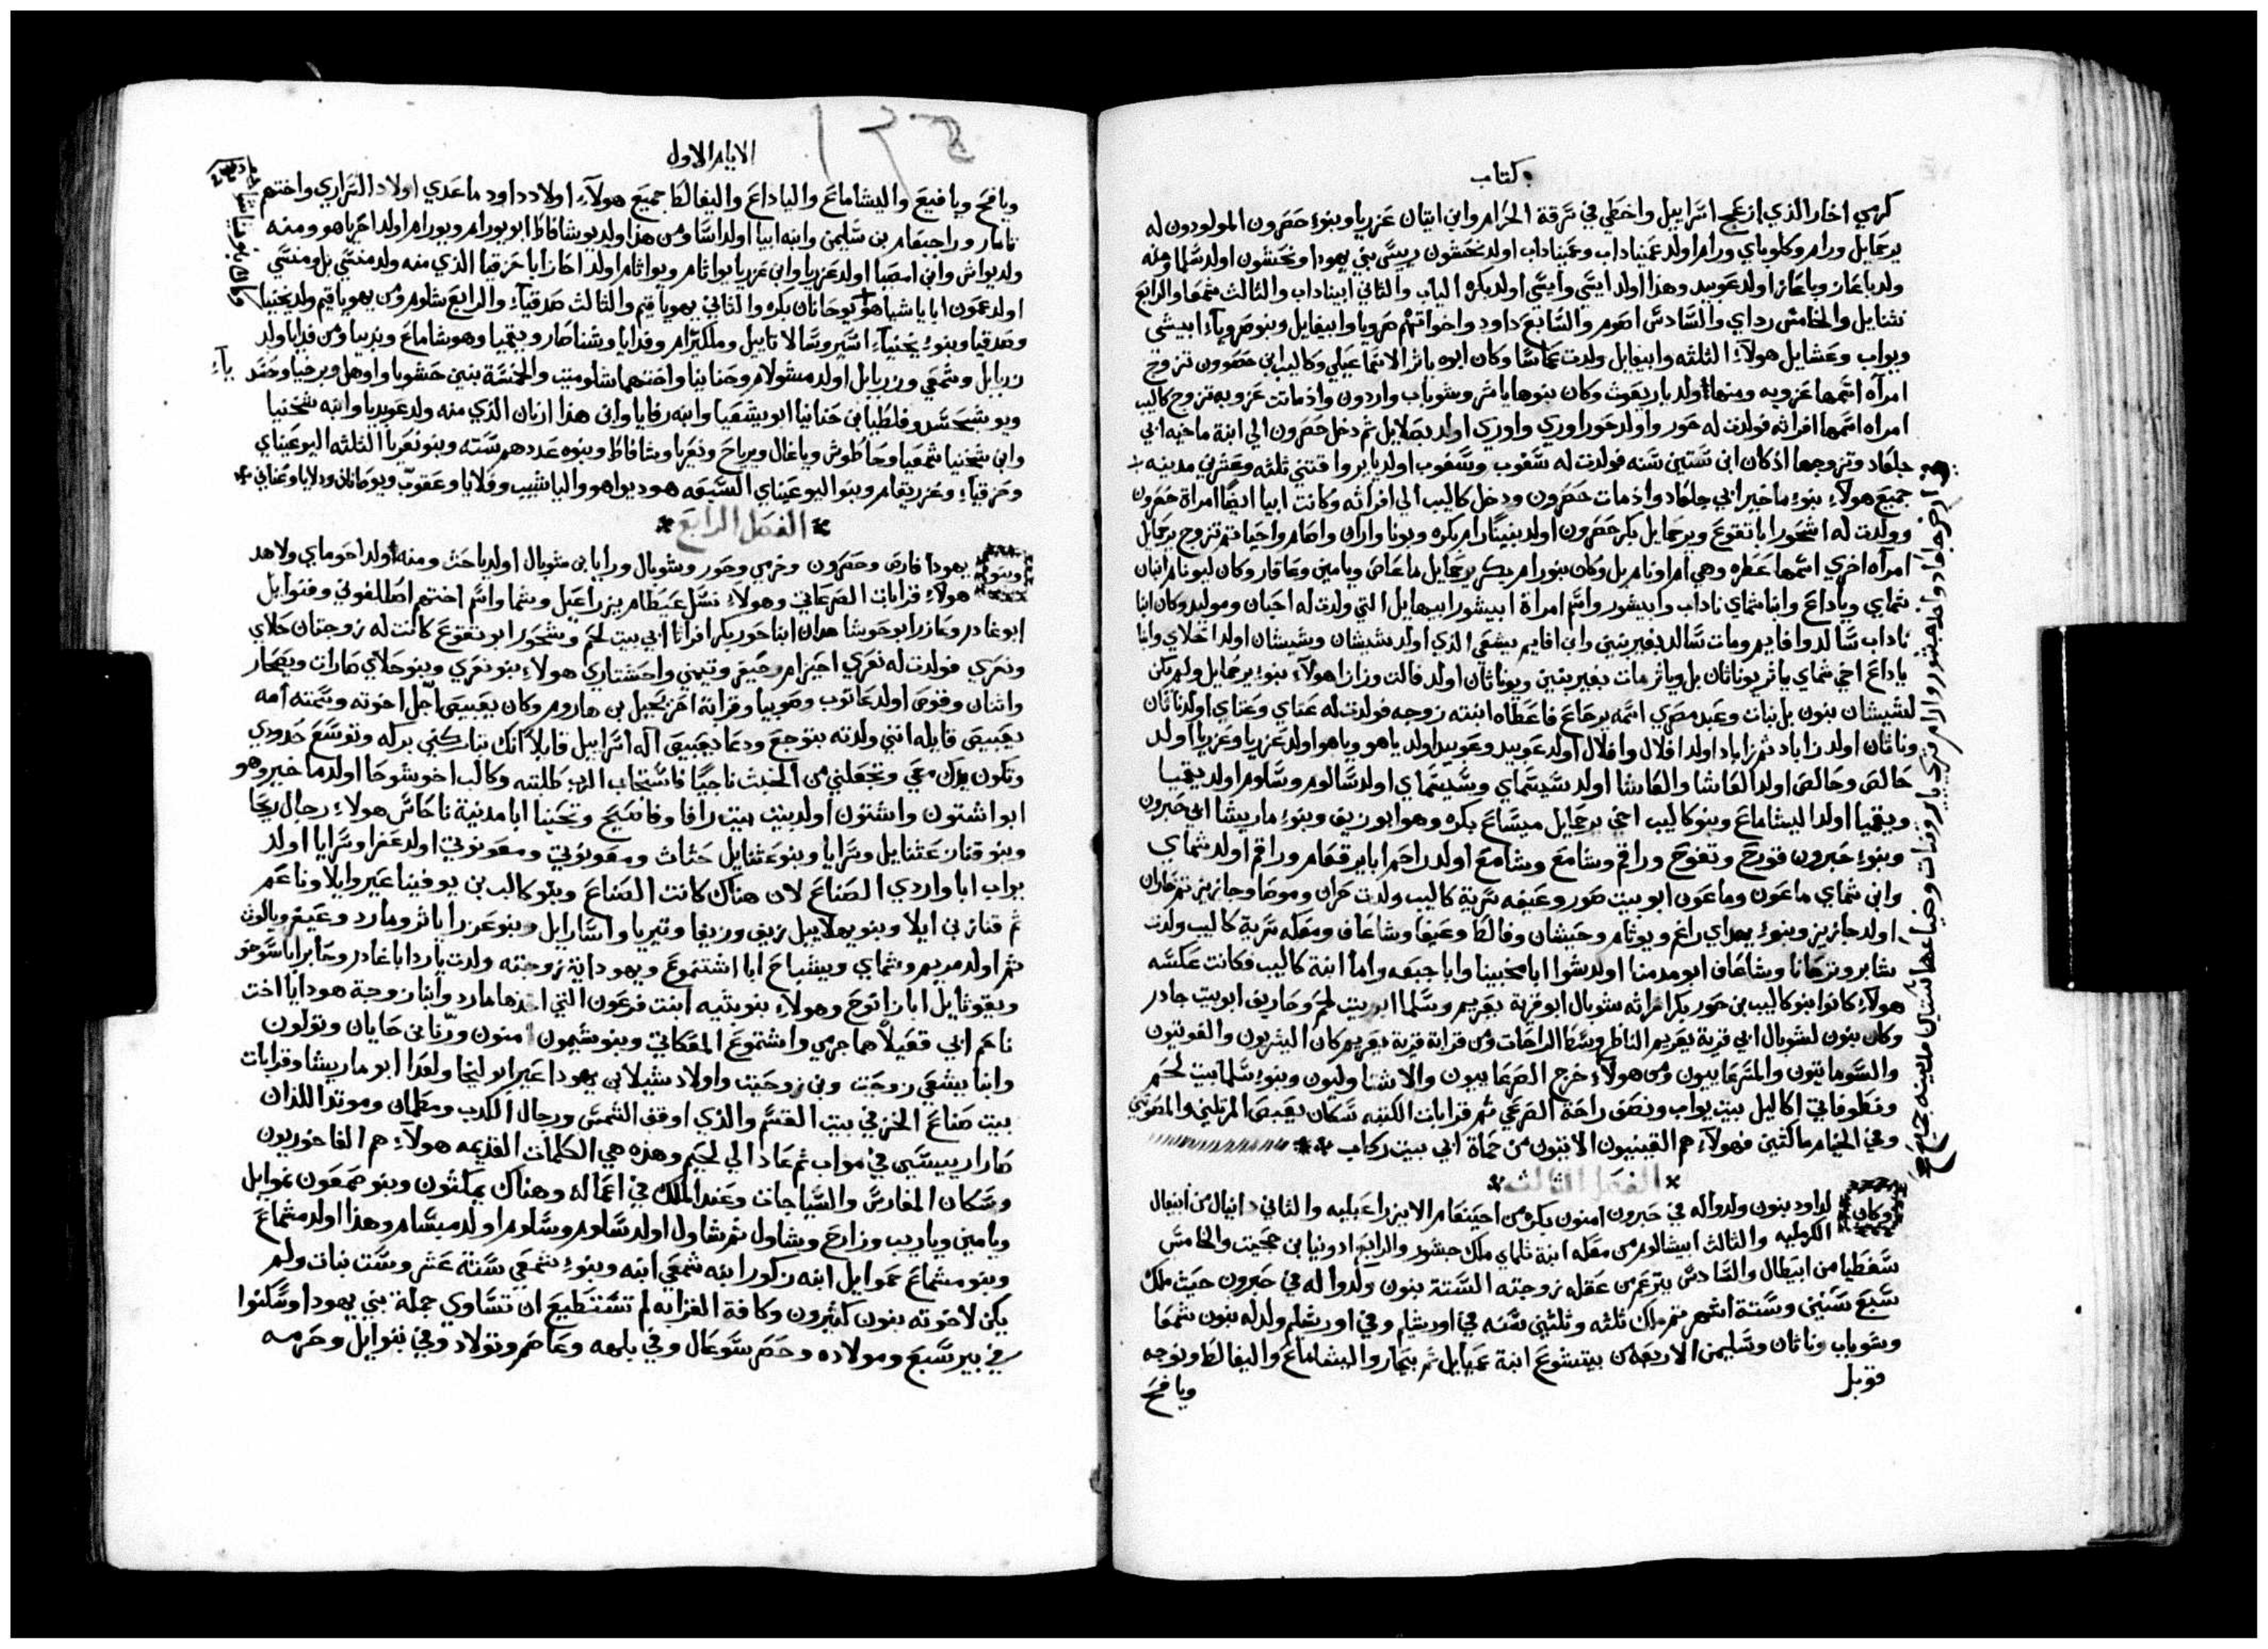 كتاب
كرمي اخار الذي ازعج اسراييل واخطي في سرقة الحرام وابن ايتان عزريا وبنوء حصرون المولودون له
يرحمايل ورام وكلوباي ورام اولد عميناداب وعميناداب اولد نحشون رييس بني يهودا ونحشون اولد سلما ومنه
ولد باعاز وباعاز اولد عوبيد وهذا اولد ايسي وايسي اولد بكره الياب والثاني ابيناداب والثالث شمعا والرابع
نثنايل والخامس رداي والسادس اصوم والسابع داود واخواتهم صرويا وابيغايل وبنو صرويا ابيشى
ويواب وعشايل هولاء الثلثه وابيغايل ولدت عماسا وكان ابوه ياثر الاسماعيلي وكاليب ابن حصرون تزوج
امرأه اسمها عزوبه ومنها اولد ياريعوث وكان بنوها ياشر وشوباب واردون واذ ماتت عزوبه تزوج كاليب
امراه اسمها افراته فولدت له حور واولد حور اوري واوري اولد بصلايل ثم دخل حصرون الي ابنة ماخيه ابي
جلعاد وتزوجها اذ كان ابن ستين سنه فولدت له سغوب وسغوب اولد ياير واقتني ثلثه وعشرين مدينه
جميع هولاء بنوء ماخير ابي جلعاد واذ مات حصرون ودخل كاليب الي افراثه وكانت ابيا ايضا امراة حصرون
وولدت له اشحور ابا تقوع ويرحمايل بكر حصرون اولد بنينا رام بكره وبونا واران واصام واحيا ثم تزوج يرحمايل
امرأه اخري اسمها عطره وهي ام اونام بل وكان بنو رام بكر يرحمايل ماعاص ويامين وعاقار وكان لبونام ابنان
شماي وياداع وابنا شماي ناداب وابيشور واسم امراة ابيشور ابيهايل التي ولدت له احبان وموليد وكان ابنا
ناداب سالد وافايم ومات سالد بغير بنين وابن افايم يشعي الذي اولد شيشان وشيشان اولد احلاي وابنا
ياداع اخي شماي ياثر يوناثان بل وياثر مات بغير بنين ويوناثان اولد فالت وزازا هولاء بنوء يرحمايل ولم يكن
لشيشان بنون بل بنات وعبد مصري اسمه يرحاع فاعطاه ابنته زوجه فولدت له عتاي وعتاي اولد ناثان
وناثان اولد زاباد ثم زاباد اولد افلال وافلال اولد عوبيد وعوبيد اولد ياهو وياهو اولد عزريا وعزريا اولد
حالص وحالص اولد العاشا والعاشا اولد سيسماي وسيسماي اولد سالوم وسلوم اولد يقميا
ويقميا اولد اليشاماع وبنو كاليب اخي يرحمايل ميساع بكره وهو ابو زيف وبنوء ماريشا ابي حبرون
وبنوء حبرون قورح وتفوح وراقم وشامع وشامع اولد راحم ابا يرقعام وراقم اولد شماي
وابن شماي ماعون وماعون ابو بيت صور وعيفه سرية كاليب ولدت حران وموصا وجازيز ثم حاران
اولد جازيز وبنوء يهداي راغم ويوثام وجيشان وفالط وعيفا وشاعاف ومعكه سرية كاليب ولدت
شابر وترحانا وشاعاف ابو مدمنا اولد شوا ابا مخبينا وابا جبعه واما ابنة كاليب فكانت عكسه
هولاء كانوا بنو كاليب بن حور بكر افراثه شوبال ابو قرية يعريم وسلما ابو بيت لحم وحاريف ابو بيت جادر
وكان بنون لشوبال ابي قرية يعريم الناظر وسط الراحات ومن قرابة قرية يعريم كان اليثريون والفوتيون
والسوماتيون والمسرعاييون ومن هولاء خرج الصرعاييون والاشتاوليون وبنوء سلما بيت لحم
ونطوفاتي اكاليل بيت يواب ونصف راحة الصرعي ثم قرابات الكتبه سكان يعبيص المرتلين والمصوتين
وفي الخيام ماكثين فهولاء هم القينيون الاتيون من حماة ابي بيت ركاب
الفصل الثالث
وكان لداود بنون ولدوا له في حبرون امنون بكره من احينعام الايزراعيليه والثاني دانيال من ابيغال
الكرمليه والثالث ابيشالوم من معكه ابنة تلماي ملك جشور والرابع ادونيا بن حجيت والخامس
سفطيا من ابيطال والسادس يترعم من عقله زوجته الستة بنون ولدوا له في حبرون حيث ملك
سبع سنين وستة اشهر ثم ملك ثلثه وثلثين سنه في اورشليم وفي اورشليم ولد له بنون شمعا
وشوباب وناثان وسليمن الاربعه من بيتشوع ابنة عميايل ثم يبحار واليشاماع واليفالط ونوجه
قوبل
ويافع
الايام الاول
ويافح ويافيع واليشاماع والياداع واليفالط جميع هولاء اولاد داود ماعدي اولاد السراري واختهم
تامار وراجبعام بن سليمن وابنه ابيا اولد اسا ومن هذا ولد يوشافاط ابو يورام ويورام اولد اخزيا هو ومنه
ولد يواش وابن امصيا اولد عزريا وابن عزريا يواثام ويواثام اولد احاز ابا حزقيا الذي منه ولد منسي بل ومنسي
اولد عمون ابا ياشيا هو يوحانان بكره والثاني يهوياقيم والثالث صدقياء والرابع شلوم ومن يهوياقيم ولد يخنيا
وصدقيا وبنوء يخنياء اسير وسالاتاييل وملكيرام وفدايا وشناصار ويقميا وهوشاماع وندبيا ومن فدايا ولد
زربابل وشمعي وزربابل اولد مشولام وحنانيا واختهما شلوميت والخمسة بنين حشوبا واوهل وبرخيا وحسد
ويوشبحسد وفلطيا بن حنانيا ابو يشعيا وابنه رفايا وابن هذا ارنان الذي منه ولد عوبديا وابنه شخنيا
وابن شخنيا شمعيا وحاطوش وياغال وبرياح ونعريا وشافاط وبنوه عددهم سته وبنو نعريا الثلثه اليوعيناي
وحزقياء وعزريقام وبنو اليوعيناي السبعه هوديواهو والياشيب وفلايا وعقوب ويوحانان ودلايا وعناني
الفصل الرابع
وبنو يهودا فارص وحصرون وخرمي وحور وشوبال ورايا بن شوبال اولد ياحث ومنه اولد احوماي ولاهد
هولاء قرابات الصرعاتي وهولاء نسل عيطام يزراعيل ويشما واسم اختهم اصطلفوني وفنوايل
ابو غادر وعازر ابو حوشا هذان ابنا حور بكر افراثا ابي بيت لحم وشحور ابو تقوع كانت له زوجتان حلاي
ونعري فولدت له نعري احيزام وحيفر وتيمني واحشتاري هولاء بنو نعري وبنو حلاي صارات ويصحار
واثنان وقوص اولد عانوب وصوبيا وقرابة احرحيل بن هاروم وكان يعبيص اجل اخوته وسمته امه
يعبيص قايله انني ولدته بتوجع ودعا يعبيص اله اسراييل قايلا انك تباركني بركه وتوسع حدودي
وتكون يدك معي وتجعلني من الخبث ناجيا فاستجاب الرب طلبته وكالب اخو شوحا اولد ماخير وهو
ابو اشتون واشتون اولد بيت رافا وفاسيح وتحنا ابا مدينة ناحاس هولاء رجال ريحا
وبنو قناز عثنايل وسرايا وبنو عثنايل حثاث ومعونوتي ومعونوتي اولد عفرا وسرايا اولد
يواب ابا وادي الصناع لان هناك كانت الصناع وبنو كالب بن يوفينا عير وايلا وناعم
ثم قناز بن ايلا وبنو يهلاييل زيف وزيفا وتيريا واسارايل وبنو عزرا ياثر ومارد وعيفر ويالون
ثم اولد مريم وشماي ويشباح ابا اشتموع ويهودايه زوجته ولدت يارد ابا غادر وحابر ابا سوخو
ويقوثايل ابا زانوح وهولاء بنو بثيه ابنت فرعون التي اخذها مارد وابنا زوجة هوديا اخت
ناحم ابي قعيلا هما جرمي واشتموع المعكاتي وبنو شيمون امنون ورنا بن حانان وتولون
وابنا يشعي زوحيت وبن زوحيت واولاد شيلا بن يهودا عير ابو ليخا ولعدا ابو ماريشا وقرابات
بيت صناع الخز في بيت القسم والذي اوقف الشمس ورجال الكدب ومطمان وموتدا اللذان
صارا رييسين في مواب ثم عادا الي لحيم وهذه هي الكلمات القديمه هولاء هم الفاخوريون
وسكان المغارس والسياجات وعند الملك في اعماله وهناك يمكثون وبنو صمعون نموايل
ويامين وياريب وزارح وشاول ثم شاول اولد سلوم وسلوم اولد ميسام وهذا اولد مشماع
وبنو مشماع حموايل ابنه زكور ابنه شمعي ابنه وبنوء شمعي ستة عشر وست بنات ولم
يكن لاخوته بنون كثيرون وكافة القرابه لم تستطيع ان تساوي جملة بني يهودا وسكنوا
في بير سبع ومولاده وحصر سوعال وفي بلهه وعاصم وتولاد وفي بتوايل وحرمه